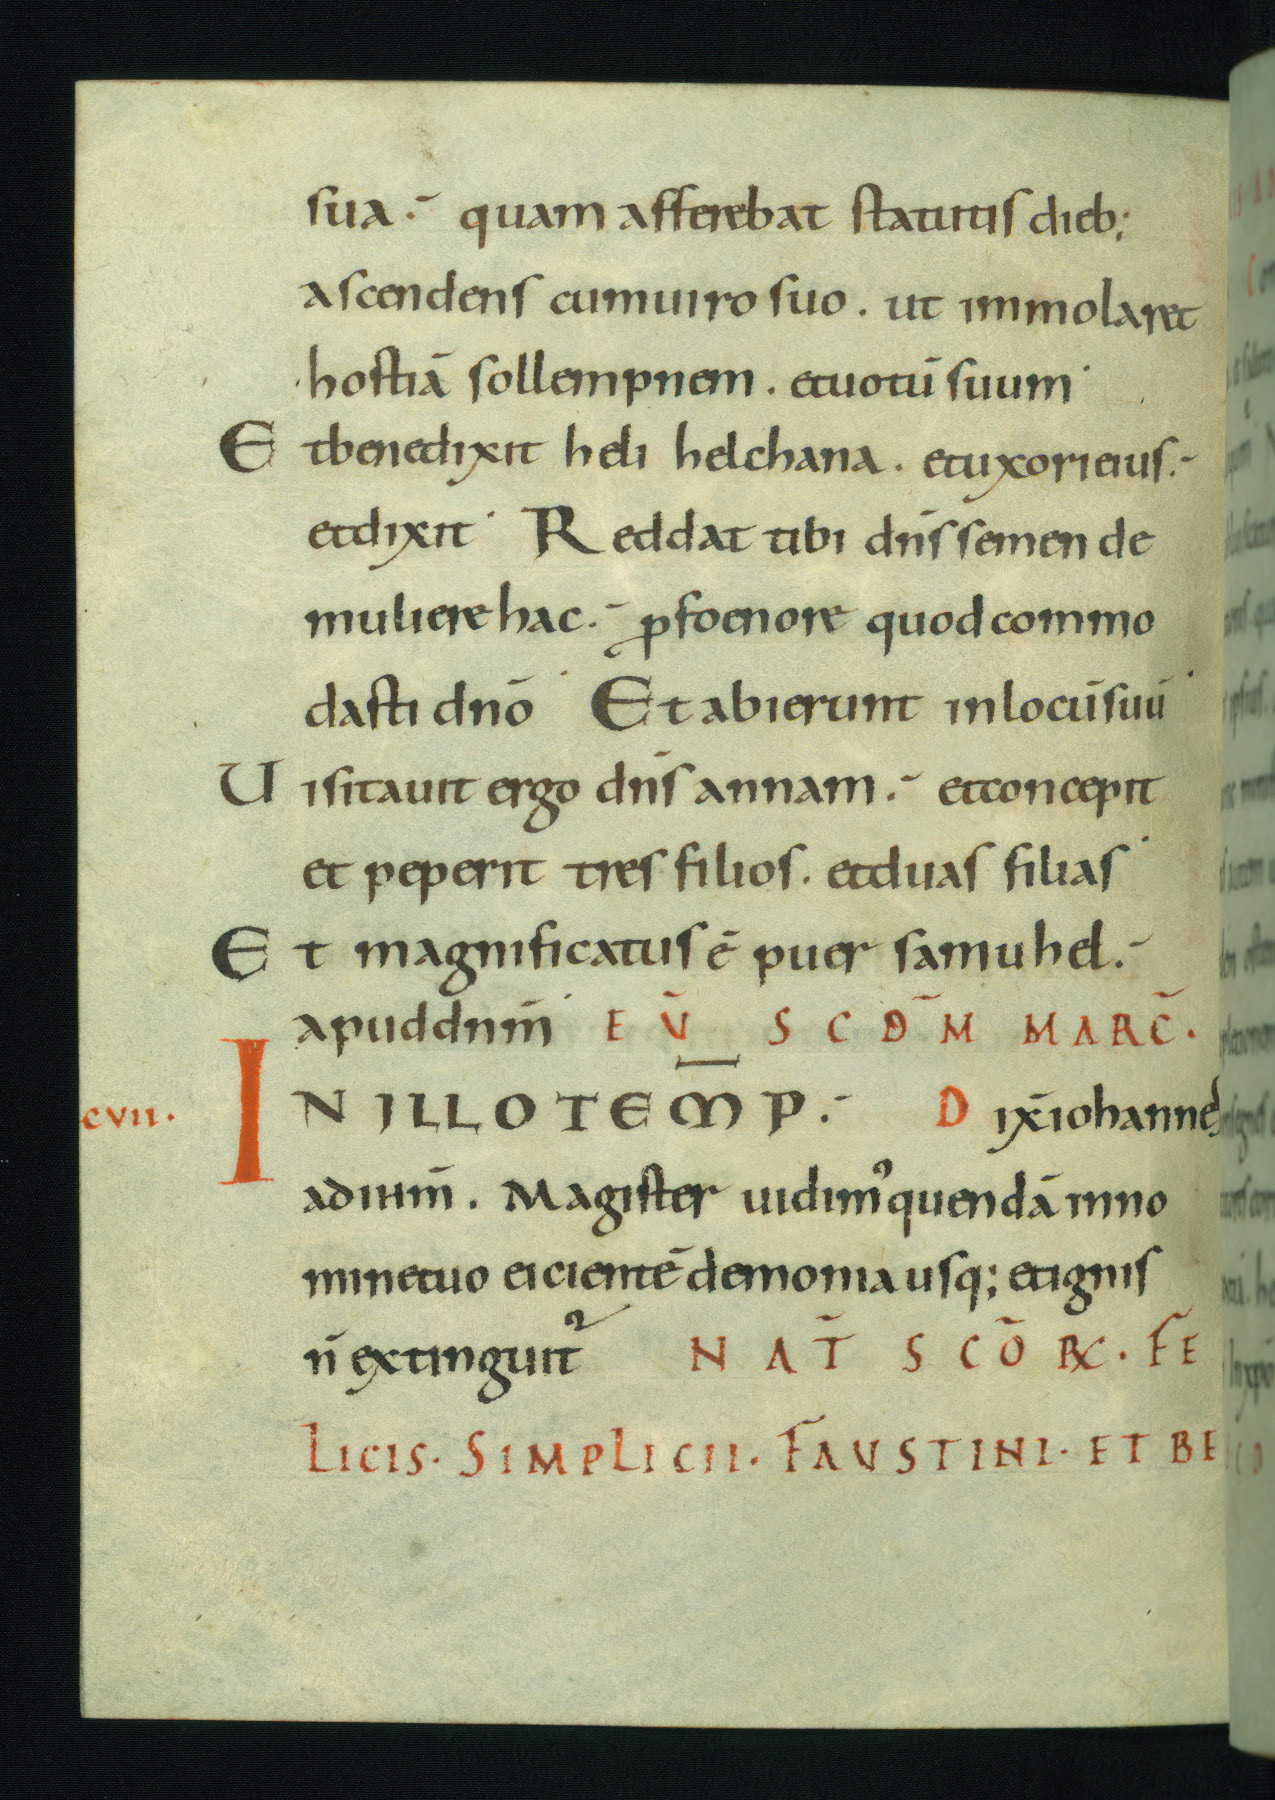 sua.- quam afferebat statutis dieb;
ascendens cumuiro suo. ut immolaret
hostiā sollempnem. etuotū suum·
Etbenedixit heli helchana. etuxorieius.-
etdixit· Reddat tibi dn̄s semen de
mulierehac.- ꝓfoenore quodcommo
dasti dnō· Etabierunt inlocū suū·
Uisitauit ergo dn̄s annam.- etconcepit
et peperit tres filios. etduas filias·
Et magnificatus ē puer samuhel.-
apuddnm̄· EŪ SCDM̄ MARC̄.
cvii. IN ILLO TEM̄P.- Dix̄ iohannes
adihm̄. Magister uidimꝰ quendā inno
minetuo eicientē demonia usq; etignis
n̄ extinguit᷑ NAT̄ SCŌꝜ. FE
LICIS. SIMPLICII. FAUSTINI. ET BE